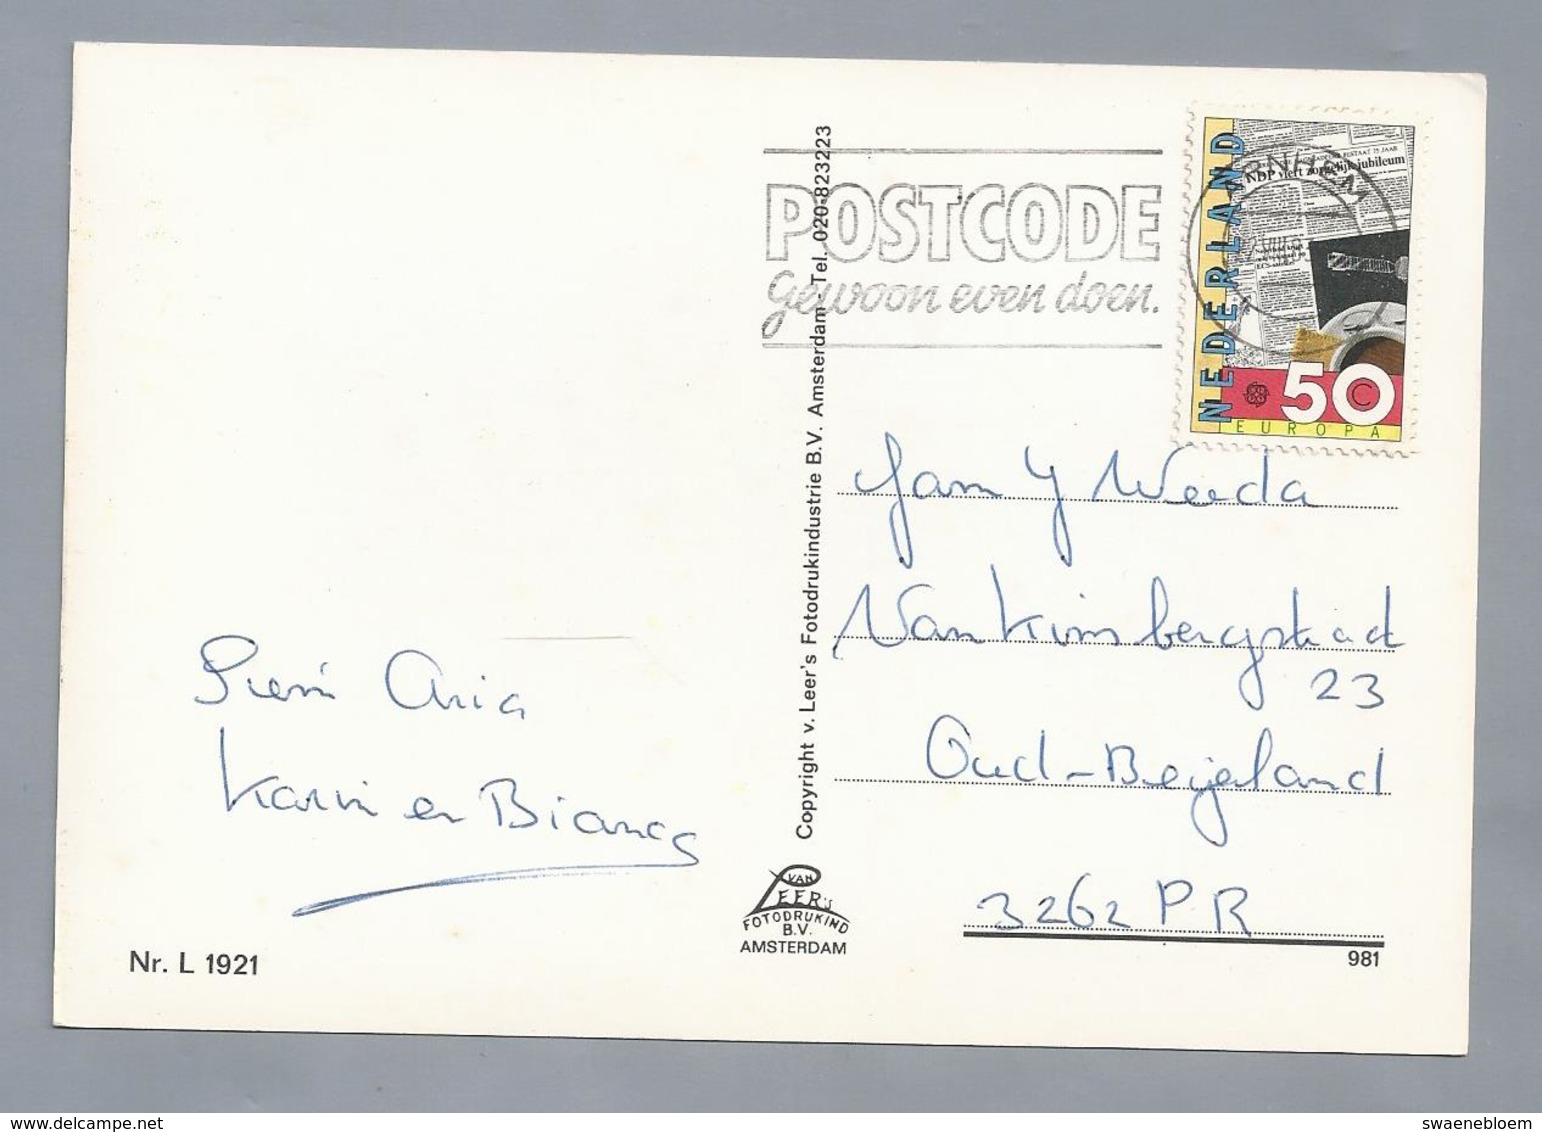 POSTCODE
Gewoon even doen.
ARNHEM
NEDERLAND
BESTAAT 75 JAAR
NDP viert zorgelijk jubileum
50 C
EUROPA
Copyright v. Leer's Fotodrukindustrie B.V. Amsterdam - Tel. 020-823223
Fam J Weeda
23
Oud-Beijerland
3262 PR
981
Aria
Karin en Bianca
Nr. L 1921
VAN
LEER'S
FOTODRUKIND
B.V.
AMSTERDAM
delcampe.net
swaenebloem